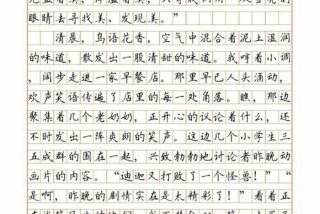 眼睛去寻找美、发现美。”
清晨，鸟语花香，空气中混合着泥土湿润
的味道，散发出一股清甜的味道。我哼着小调
，阔步走进一家早餐店。那里早已人头涌动，
欢声笑语传遍了店里的每一处角落。瞧，那边
聚集着几个老奶奶，正开心的议论着什么，还
不时发出一阵爽朗的笑声。这边几个小学生三
五成群的围在一起，兴致勃勃地讨论着昨晚动
画片的内容。“迪迦又打败了一个怪兽！”“
是啊，昨晚的剧情实在是太精彩了！”看着正